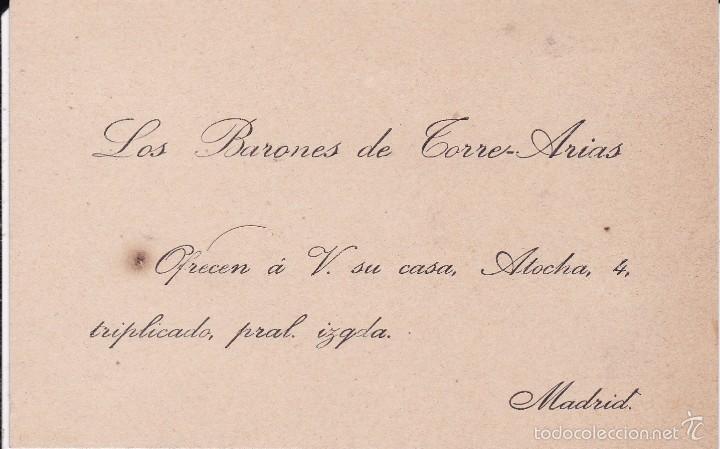 Los Barones de Torre-Arias
Ofrecen á V. su casa, Atocha, 4,
triplicado, pral. izqda.
Madrid.
todocoleccion.net